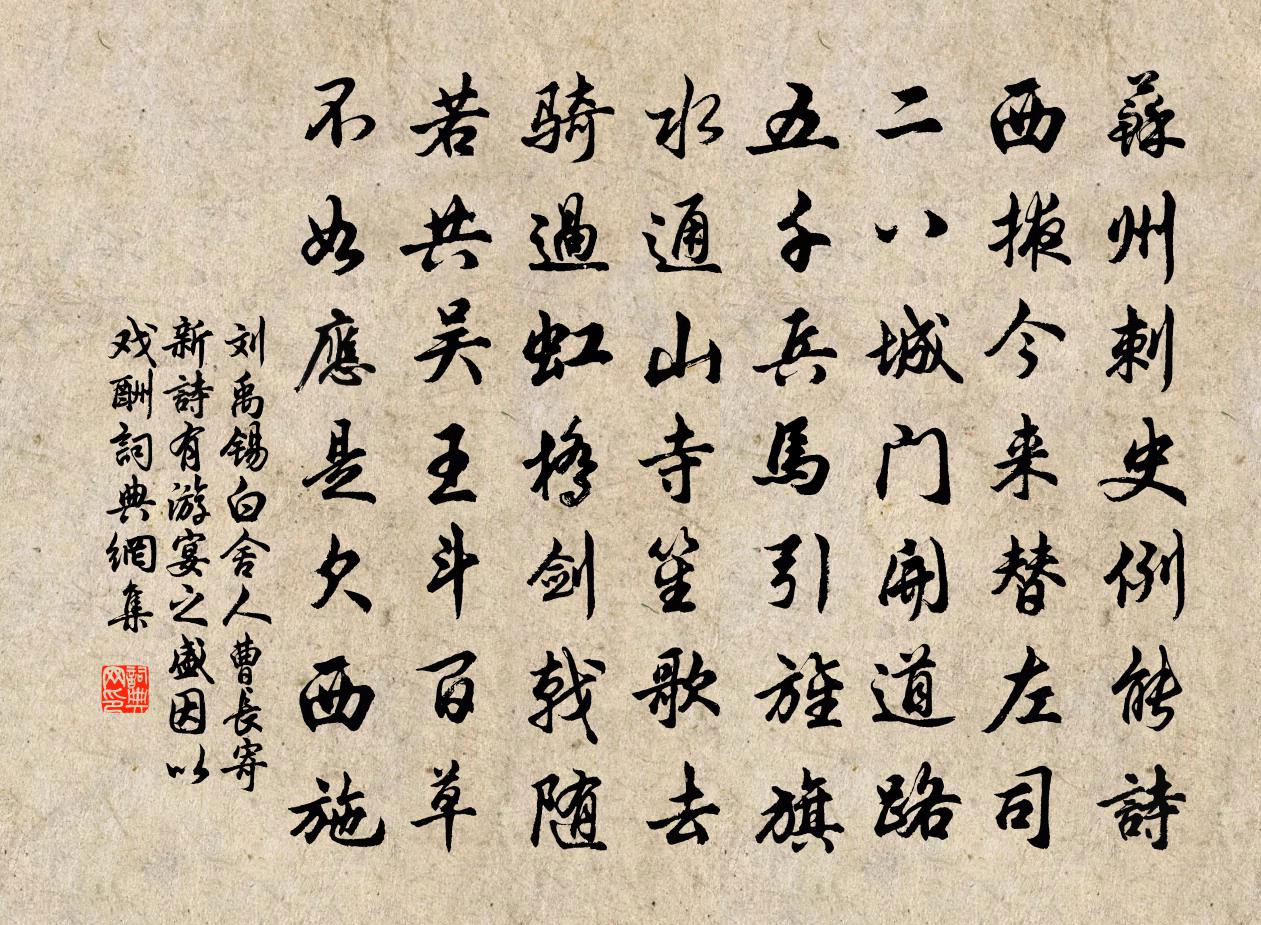 蘇州刺史例能詩
西掖今来替左司
二八城门開道路
五千兵馬引旌旗
水通山寺笙歌去
騎過虹橋剑戟随
若共吴王斗百草
不如應是欠西施
刘禹锡白舍人曹長寄
新詩有游宴之盛因以
戏酬詞典網集
詞典网印